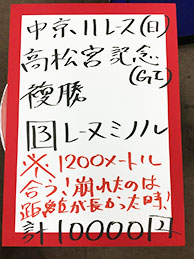 中京11レース(日)
高松宮記念(GI)
複勝
13 レーヌミノル
※1200メートル
合う!崩れたのは
距離が長かった時!
計10000円